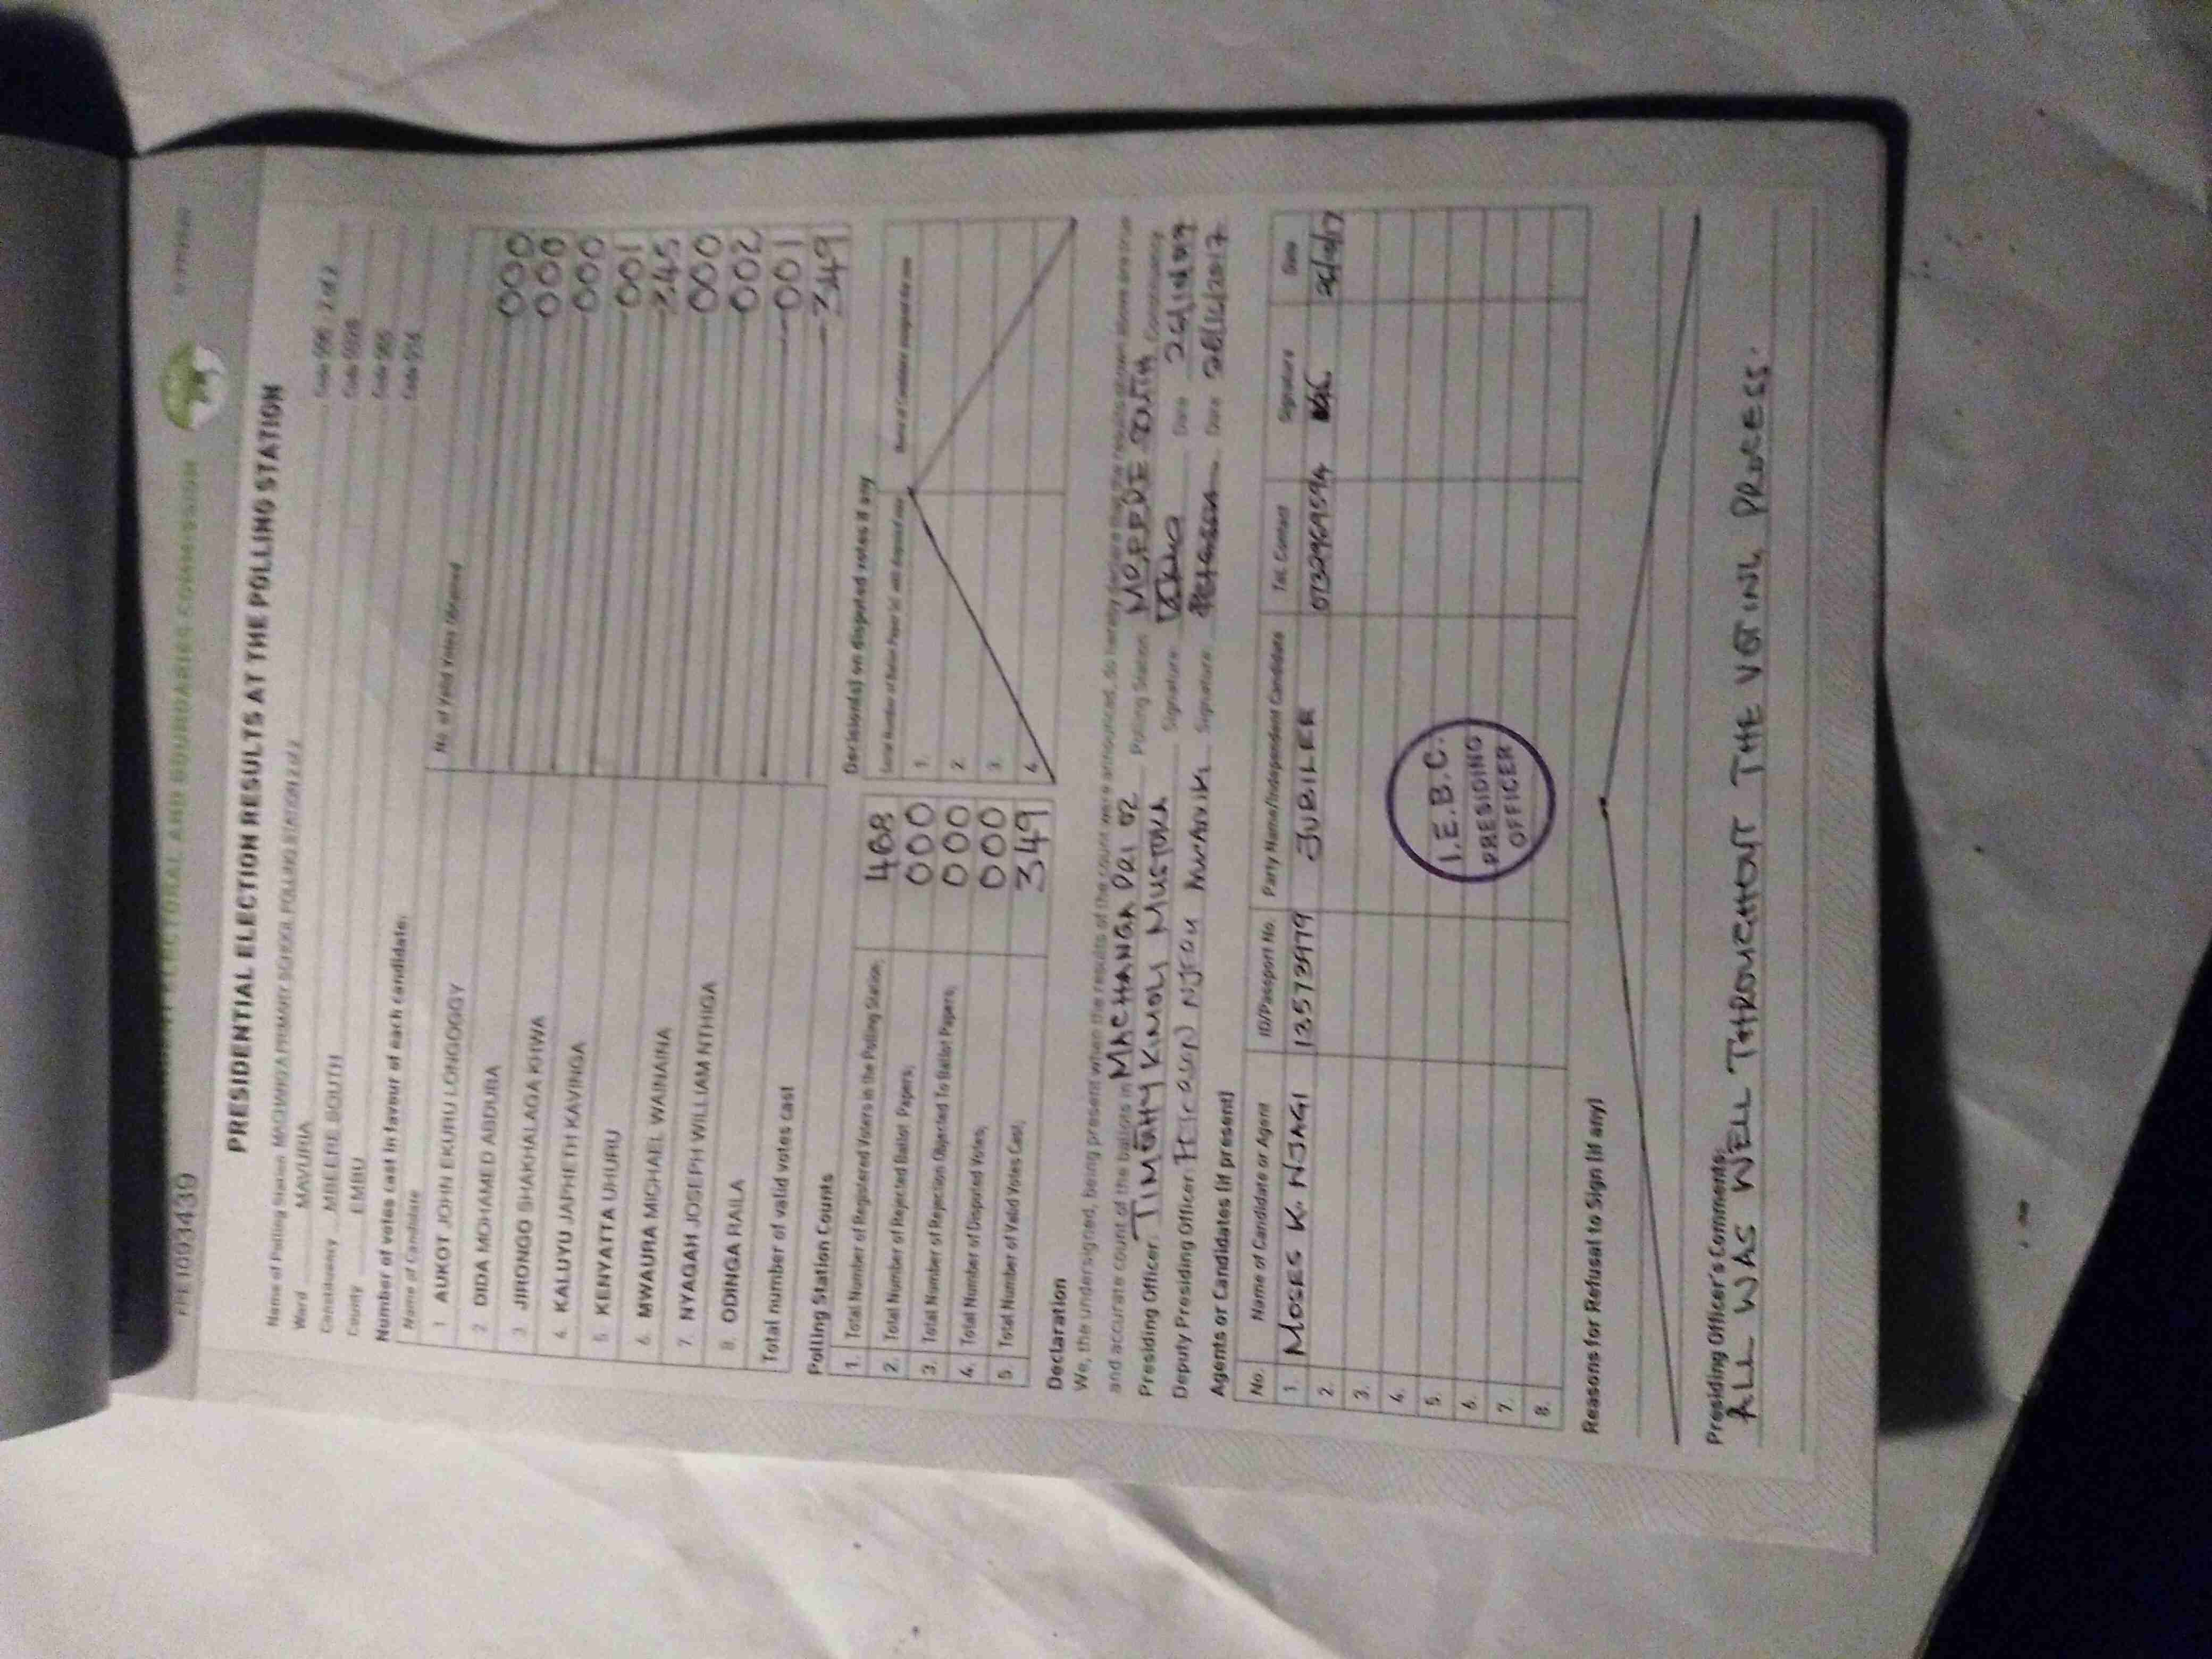 PRE1093439
ELECTORAL AND BOUNDARIES COMMISSION
PRESIDENTIAL ELECTION RESULTS AT THE POLLING STATION
Name of Polling Station PRIMARY SCHOOL POLLING STATION 2 of 2
Ward MAVURIA
Constituency MBEERE SOUTH
County EMBU
Number of votes cast in favour of each candidate:
Name of Candidate No. of Valid Votes Obtained
1. AUKOT JOHN EKURU LONGOGGY 000
2. DIDA MOHAMED ABDUBA 000
3. JIRONGO SHAKHALAGA KHWA 000
4. KALUYU JAPHETH KAVINGA 001
5. KENYATTA UHURU 345
6. MWAURA MICHAEL WAINAINA 000
7. NYAGAH JOSEPH WILLIAM NTHIGA 002
8. ODINGA RAILA 001
Total number of valid votes cast 349
Polling Station Counts
1. Total Number of Registered Voters in the Polling Station; 468
2. Total Number of Rejected Ballot Papers; 000
3. Total Number of Rejection Objected To Ballot Papers; 000
4. Total Number of Disputed Votes; 000
5. Total Number of Valid Votes Cast; 349
Decision(s) on disputed votes if any
1.
2.
3.
4.
Declaration
We, the undersigned, being present when the results of the count were announced, do hereby declare that the results shown above are true
and accurate count of the ballots in MACHANGA PRI 02 Polling Station MBEERE SOUTH Constituency
Presiding Officer: TIMOTHY Signature Date
Deputy Presiding Officer: NJERU Signature Date 26/10/2017
Agents or Candidates (if present)
No. Name of Candidate or Agent ID/Passport No. Party Name/Independent Candidate Tel. Contact Signature Date
1. MOSES K. NJAGI 12572979 JUBILEE
2.
3.
4.
5.
6.
7.
8.
I.E.B.C.
PRESIDING
OFFICER
Reasons for Refusal to Sign (if any)
Presiding Officer's Comments:
ALL WAS WELL THROUGHOUT THE VOTING PROCESS.